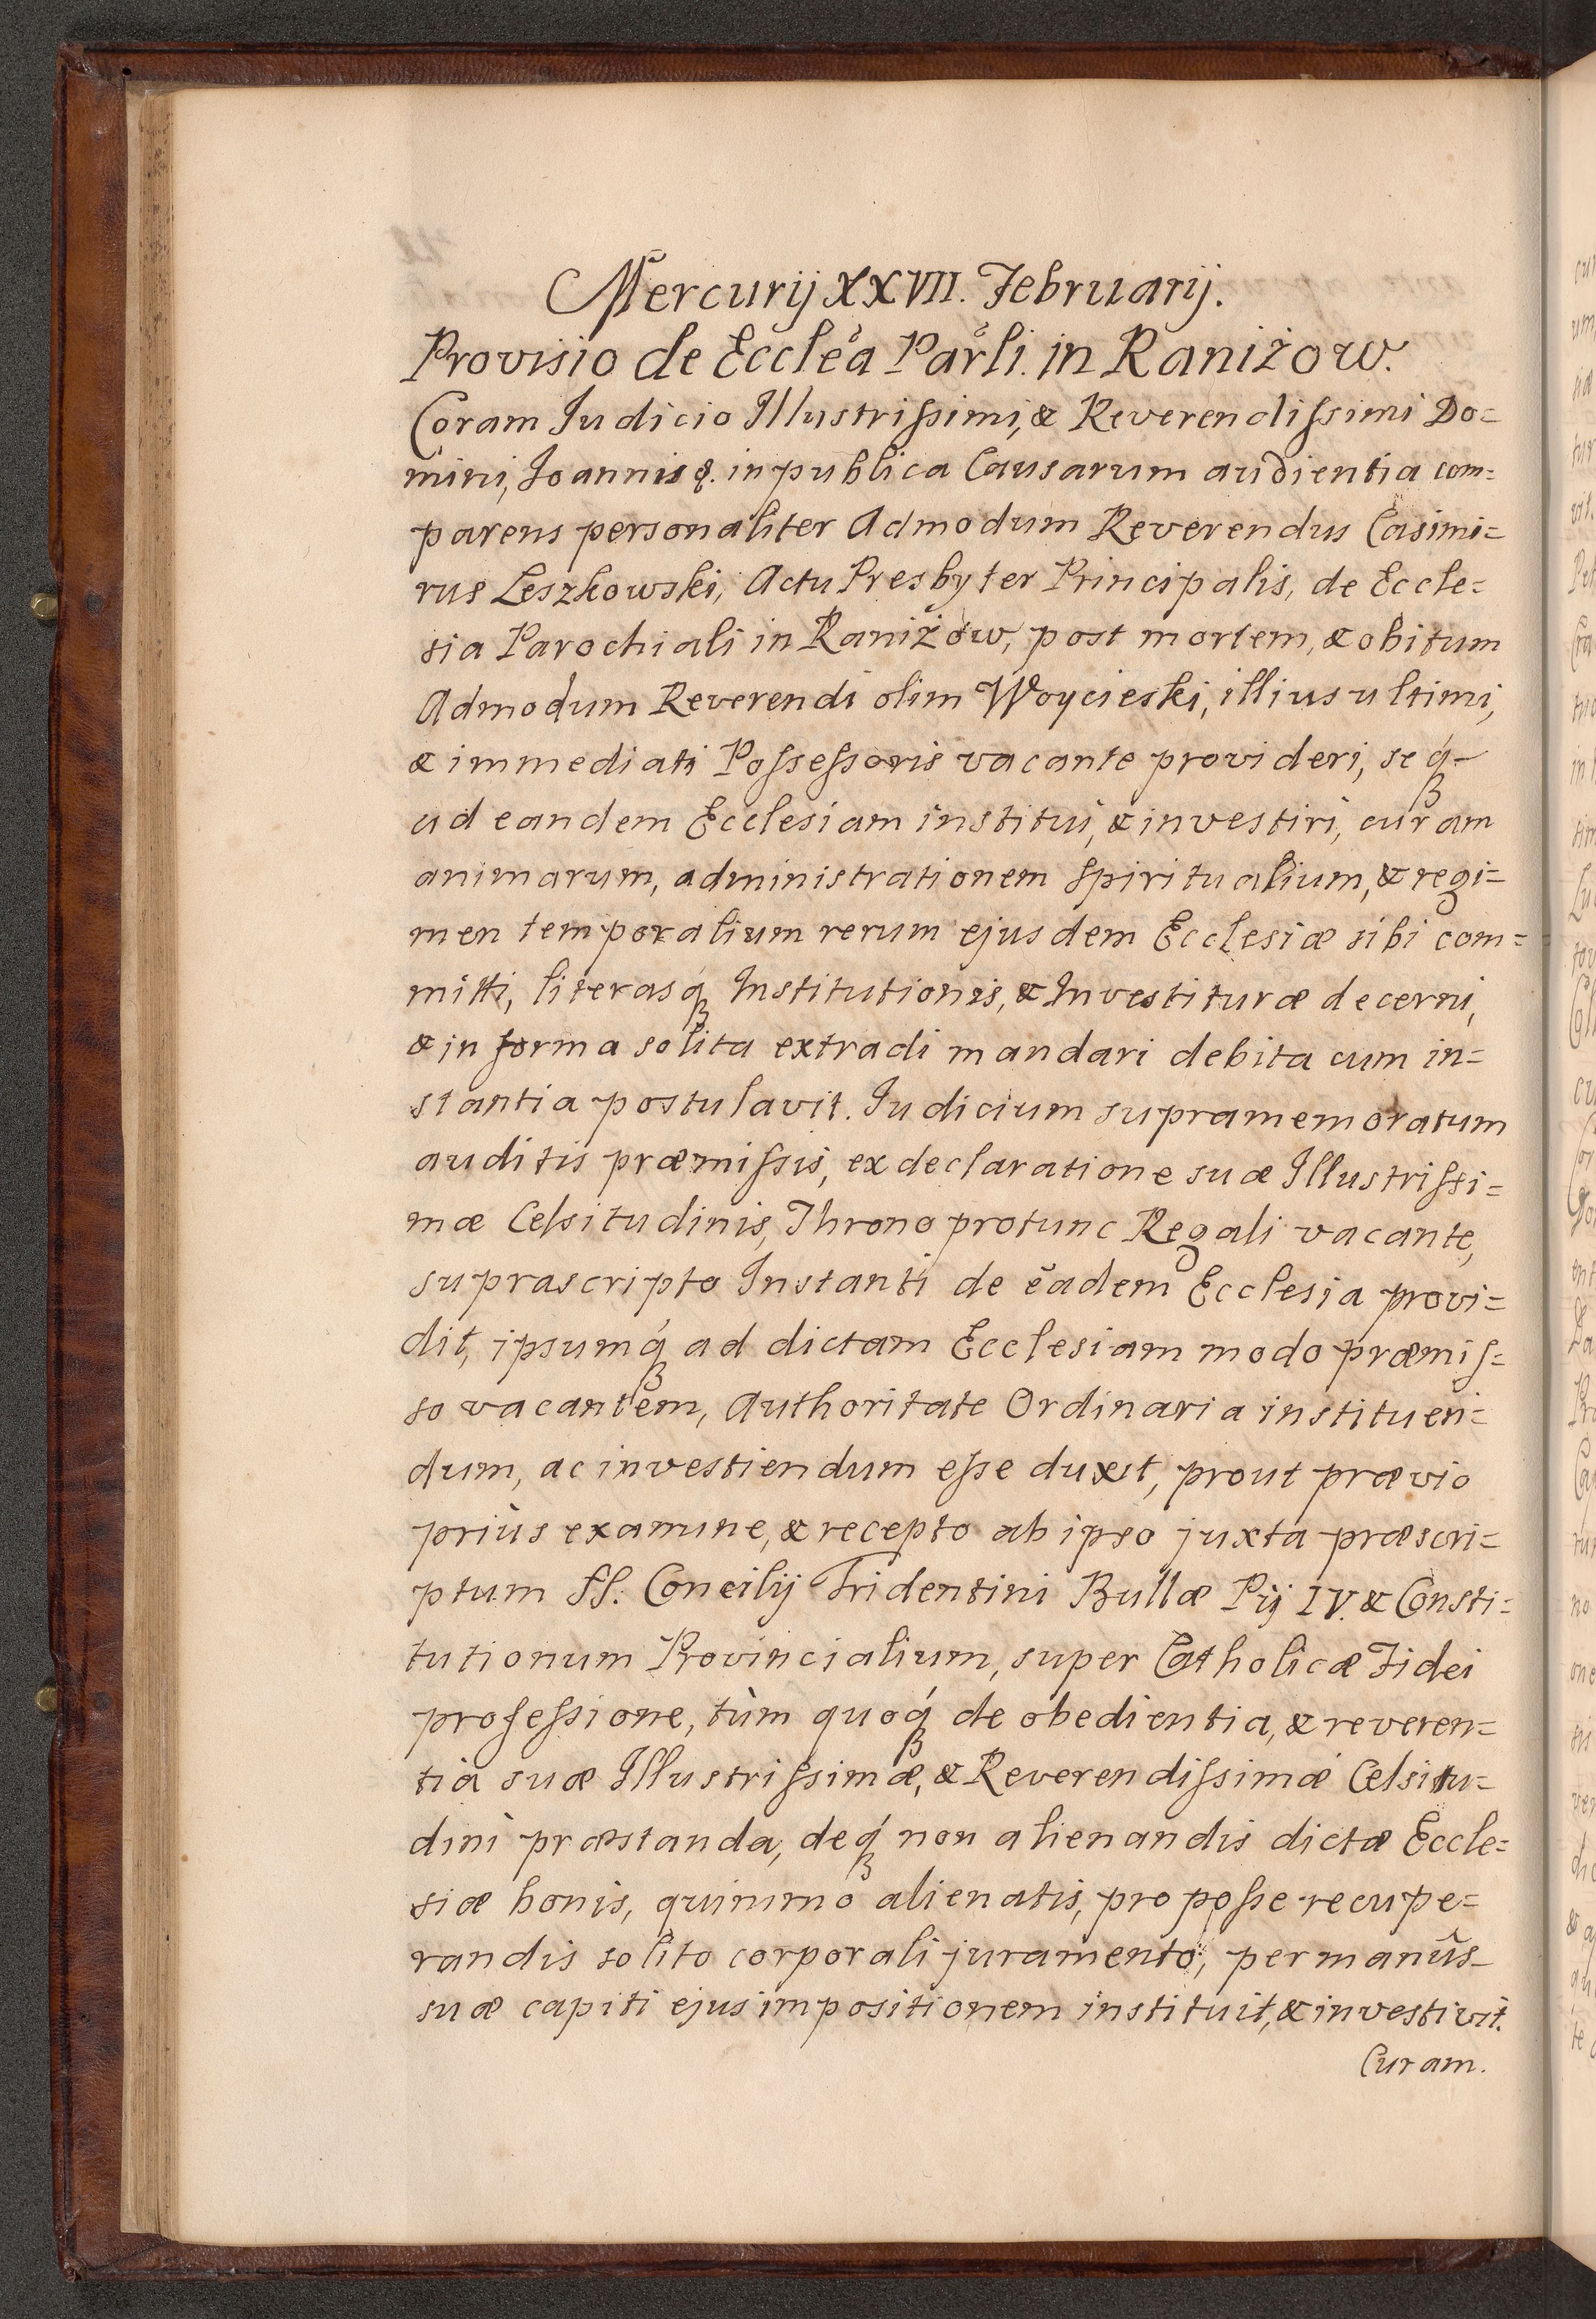 Mercurij XXVII. Februarij.
Provisio de Ecclĕa Parli. in Raniżow.
Coram Iudicio Illustriſsimi, & Reverendiſsimi Do=
mini, Ioannis &. in publica Causarum audientia com=
parens personaliter Admodum Reverendus Casimi=
rus Leszkowski, Actu Presbyter Principalis, de Eccle=
sia Parochiali in Raniżow, post mortem, & obitum
Admodum Reverendi olim Woycieski, illius ultimi,
& immediati Poſseſsoris vacante provideri, seq́
ad eandem Ecclesiam institui, & investiri, curam
animarum, administrationem Spiritualium, & regi=
men temporalium rerum ejusdem Ecclesiæ sibi com=
mitti, literasq́ Institutionis, & Investituræ decerni,
& in forma solita extradi mandari debita cum in=
stantia postulavit. Iudicium supramemoratum
auditis præmiſsis, ex declaratione suæ Illustriſsi=
mæ Celsitudinis, Throno protunc Regali vacante,
suprascripto Instanti de eadem Ecclesia provi=
dit, ipsumq́ ad dictam Ecclesiam modo præmiſ=
so vacantem, Authoritate Ordinaria instituen=
dum, ac investiendum eſse duxit, prout prævio
priùs examine, & recepto ab ipso juxta præscri=
ptum SS. Concilij Tridentini Bullæ Pij IV. & Consti=
tutionum Provincialium, super Catholicæ Fidei
profeſsione, tùm quoq́ de obedientia, & reveren=
tia suæ Illustriſsimæ, & Reverendiſsimæ Celsitu=
dini præstanda, deq́ non alienandis dictæ Eccle=
siæ bonis, quinimo alienatis, pro poſse recupe=
randis solito corporali juramento, per manûs
suæ capiti ejus impositionem instituit, & investivit.
Curam.